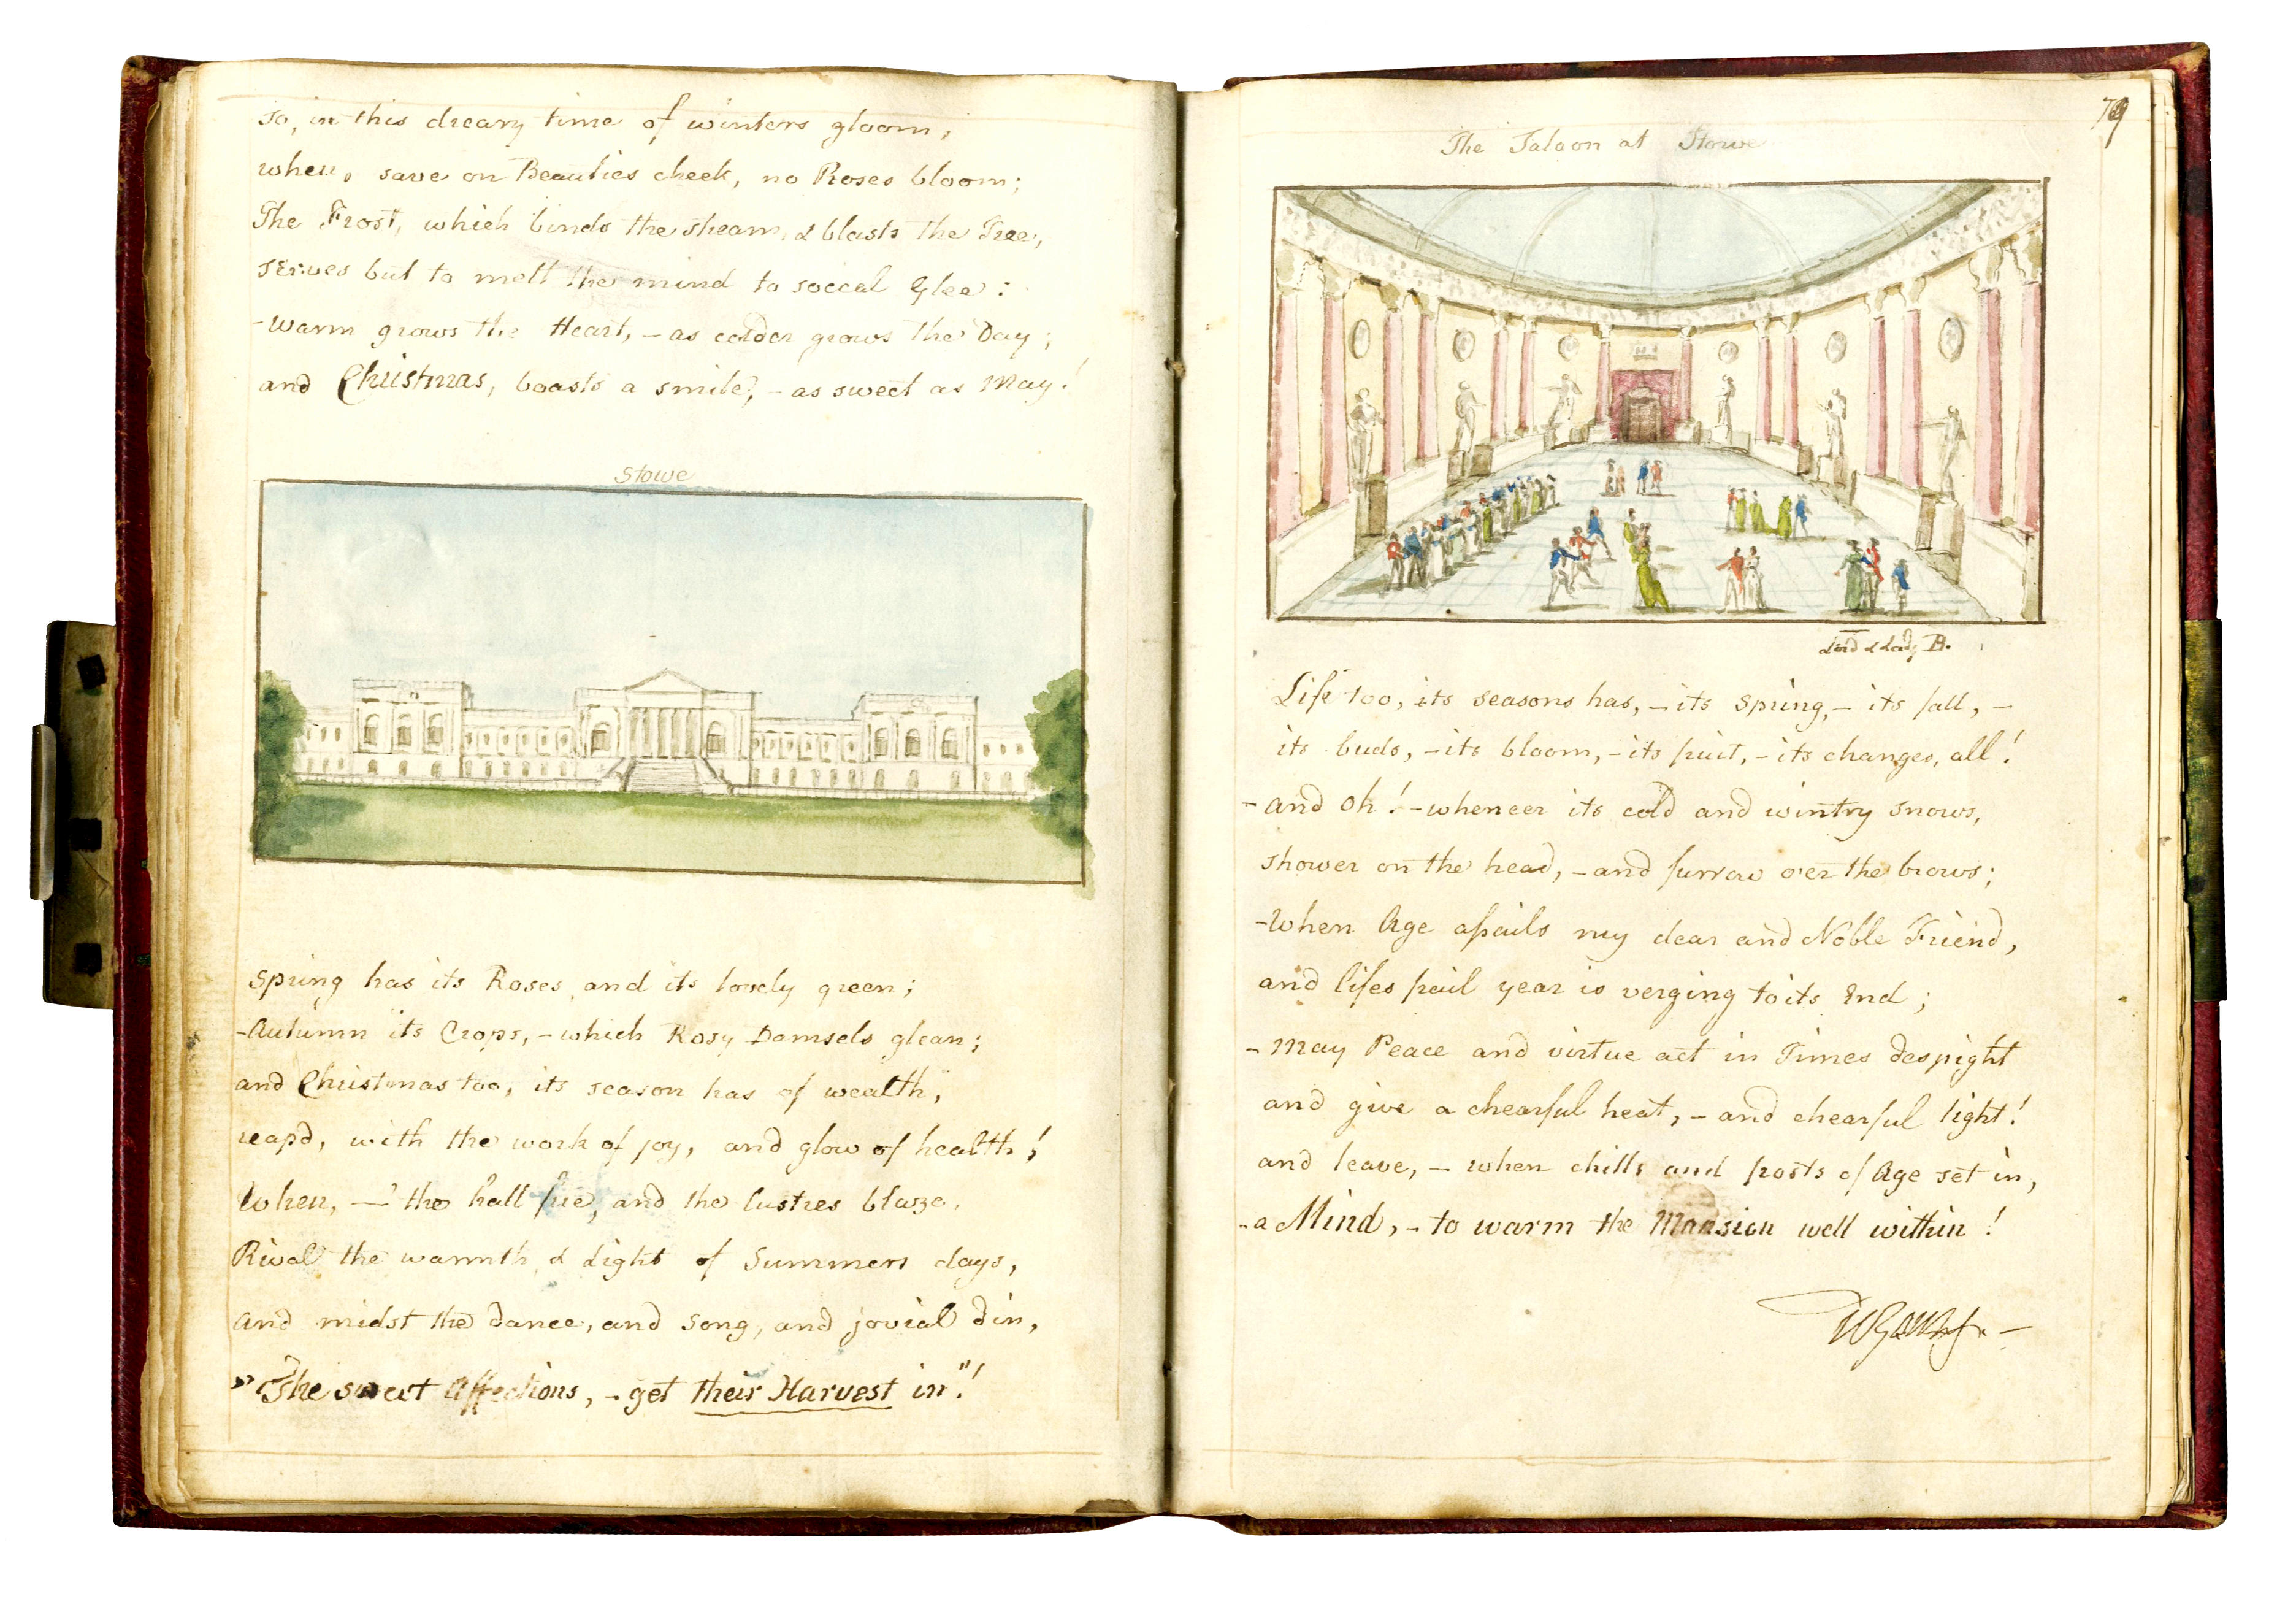 So, in this dreary time of winters gloom,
when, save on Beauties cheek, no Roses bloom;
The Frost, which binds the stream, & blasts the Tree,
serves but to melt the mind to soccal Glee:
-Warm grows the Heart, - as colder grows the Day;
and Christmas, boasts a smile, - as sweet as May!
Stowe
Spring has its Roses, and its lovely green;
-Autumn its Crops, - which Rosy Damsels glean;
and Christmas too, its season has of wealth,
reap'd, with the work of joy, and glow of health!
When, - the hall fire, and the lustres blaze,
Rival the warmth & Light of Summers days,
and midst the dance, and song, and jovial din,
"The sweet Affections, - get their Harvest in"!
79
The Saloon at Stowe
Lord & Lady B.
Life too, its seasons has, - its spring, - its fall, -
its buds, - its bloom, - its fruit, - its changes, all!
- and Oh! - wheneer its cold and wintry snows,
shower on the head, - and furrow o'er the brows;
-When Age assails my dear and Noble Friend,
and lifes frail year is verging to its End;
- May Peace and virtue act in Times despight
and give a chearful heat, - and chearful light!
and leave, - when chills and frosts of Age set in,
- a Mind, - to warm the Mansion well within!